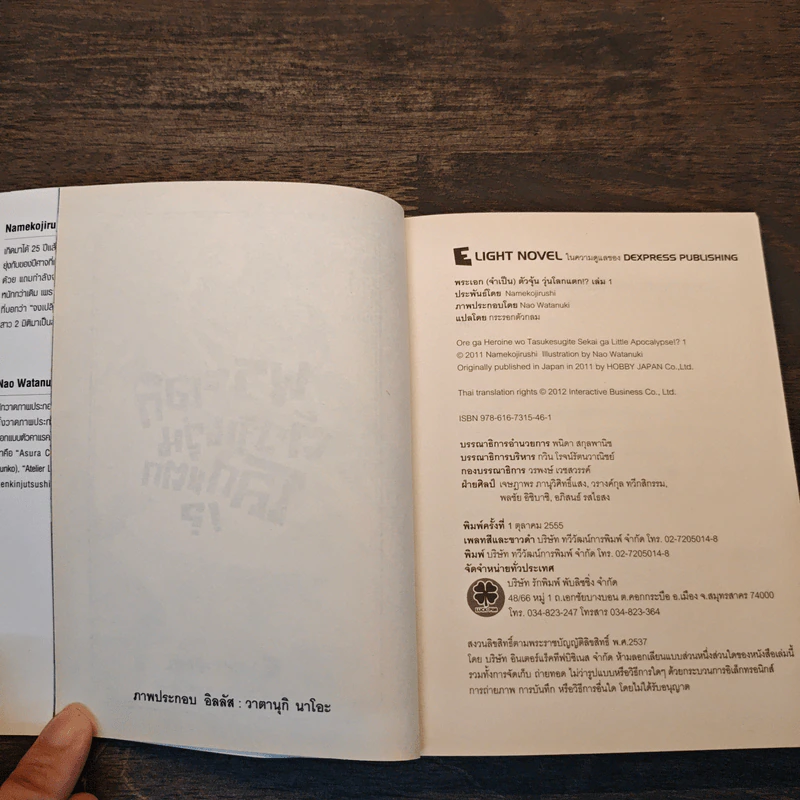 Namekojiru
เกิดมาได้ 25 ปีแล้
ยุ่งกับของปีศาจที่
ด้วย แถมกำลังจ
หนักกว่าเดิม เพรา
ที่บอกว่า "จงเปลี่
สาว 2 มิติมาเป็นส
Nao Watanu
นักวาดภาพประกอ
ออกแบบตัวคาแรค
"Asura C
unko), "Atelier L
enkinjutsushi
ภาพประกอบ อิลลัส : วาตานุกิ นาโอะ
E LIGHT NOVEL ในความดูแลของ DEXPRESS PUBLISHING
พระเอก (จำเป็น) ตัวจุ้น วุ่นโลกแตก!? เล่ม 1
ประพันธ์โดย Namekojirushi
ภาพประกอบโดย Nao Watanuki
แปลโดย กระรอกตัวกลม
Ore ga Heroine wo Tasukesugite Sekai ga Little Apocalypse!? 1
© 2011 Namekojirushi Illustration by Nao Watanuki
Originally published in Japan in 2011 by HOBBY JAPAN Co.,Ltd.
Thai translation rights © 2012 Interactive Business Co., Ltd.
ISBN 978-616-7315-46-1
บรรณาธิการอำนวยการ พนิดา สกุลพานิช
บรรณาธิการบริหาร กวิน โรจน์รัตนวาณิชย์
กองบรรณาธิการ วรพงษ์ เวชสวรรค์
ฝ่ายศิลป์ เจษฎาพร ภานุวิศิทธิ์แสง, วรางค์กุล ทวีกสิกรรม,
พลชัย อิชิบาชิ, อภิสนธ์ รสไธสง
พิมพ์ครั้งที่ 1 ตุลาคม 2555
เพลทสีและขาวดำ บริษัท ทวีวัฒน์การพิมพ์ จำกัด โทร. 02-7205014-8
พิมพ์ บริษัท ทวีวัฒน์การพิมพ์ จำกัด โทร. 02-7205014-8
จัดจำหน่ายทั่วประเทศ
บริษัท รักพิมพ์ พับลิชชิ่ง จำกัด
48/66 หมู่ 1 ถ.เอกชัยบางบอน ต.คอกกระบือ อ.เมือง จ.สมุทรสาคร 74000
โทร. 034-823-247 โทรสาร 034-823-364
สงวนลิขสิทธิ์ตามพระราชบัญญัติลิขสิทธิ์ พ.ศ.2537
โดย บริษัท อินเตอร์แร็คทีฟบิซิเนส จำกัด ห้ามลอกเลียนแบบส่วนหนึ่งส่วนใดของหนังสือเล่มนี้
รวมทั้งการจัดเก็บ ถ่ายทอด ไม่ว่ารูปแบบหรือวิธีการใดๆ ด้วยกระบวนการอิเล็กทรอนิกส์
การถ่ายภาพ การบันทึก หรือวิธีการอื่นใด โดยไม่ได้รับอนุญาต